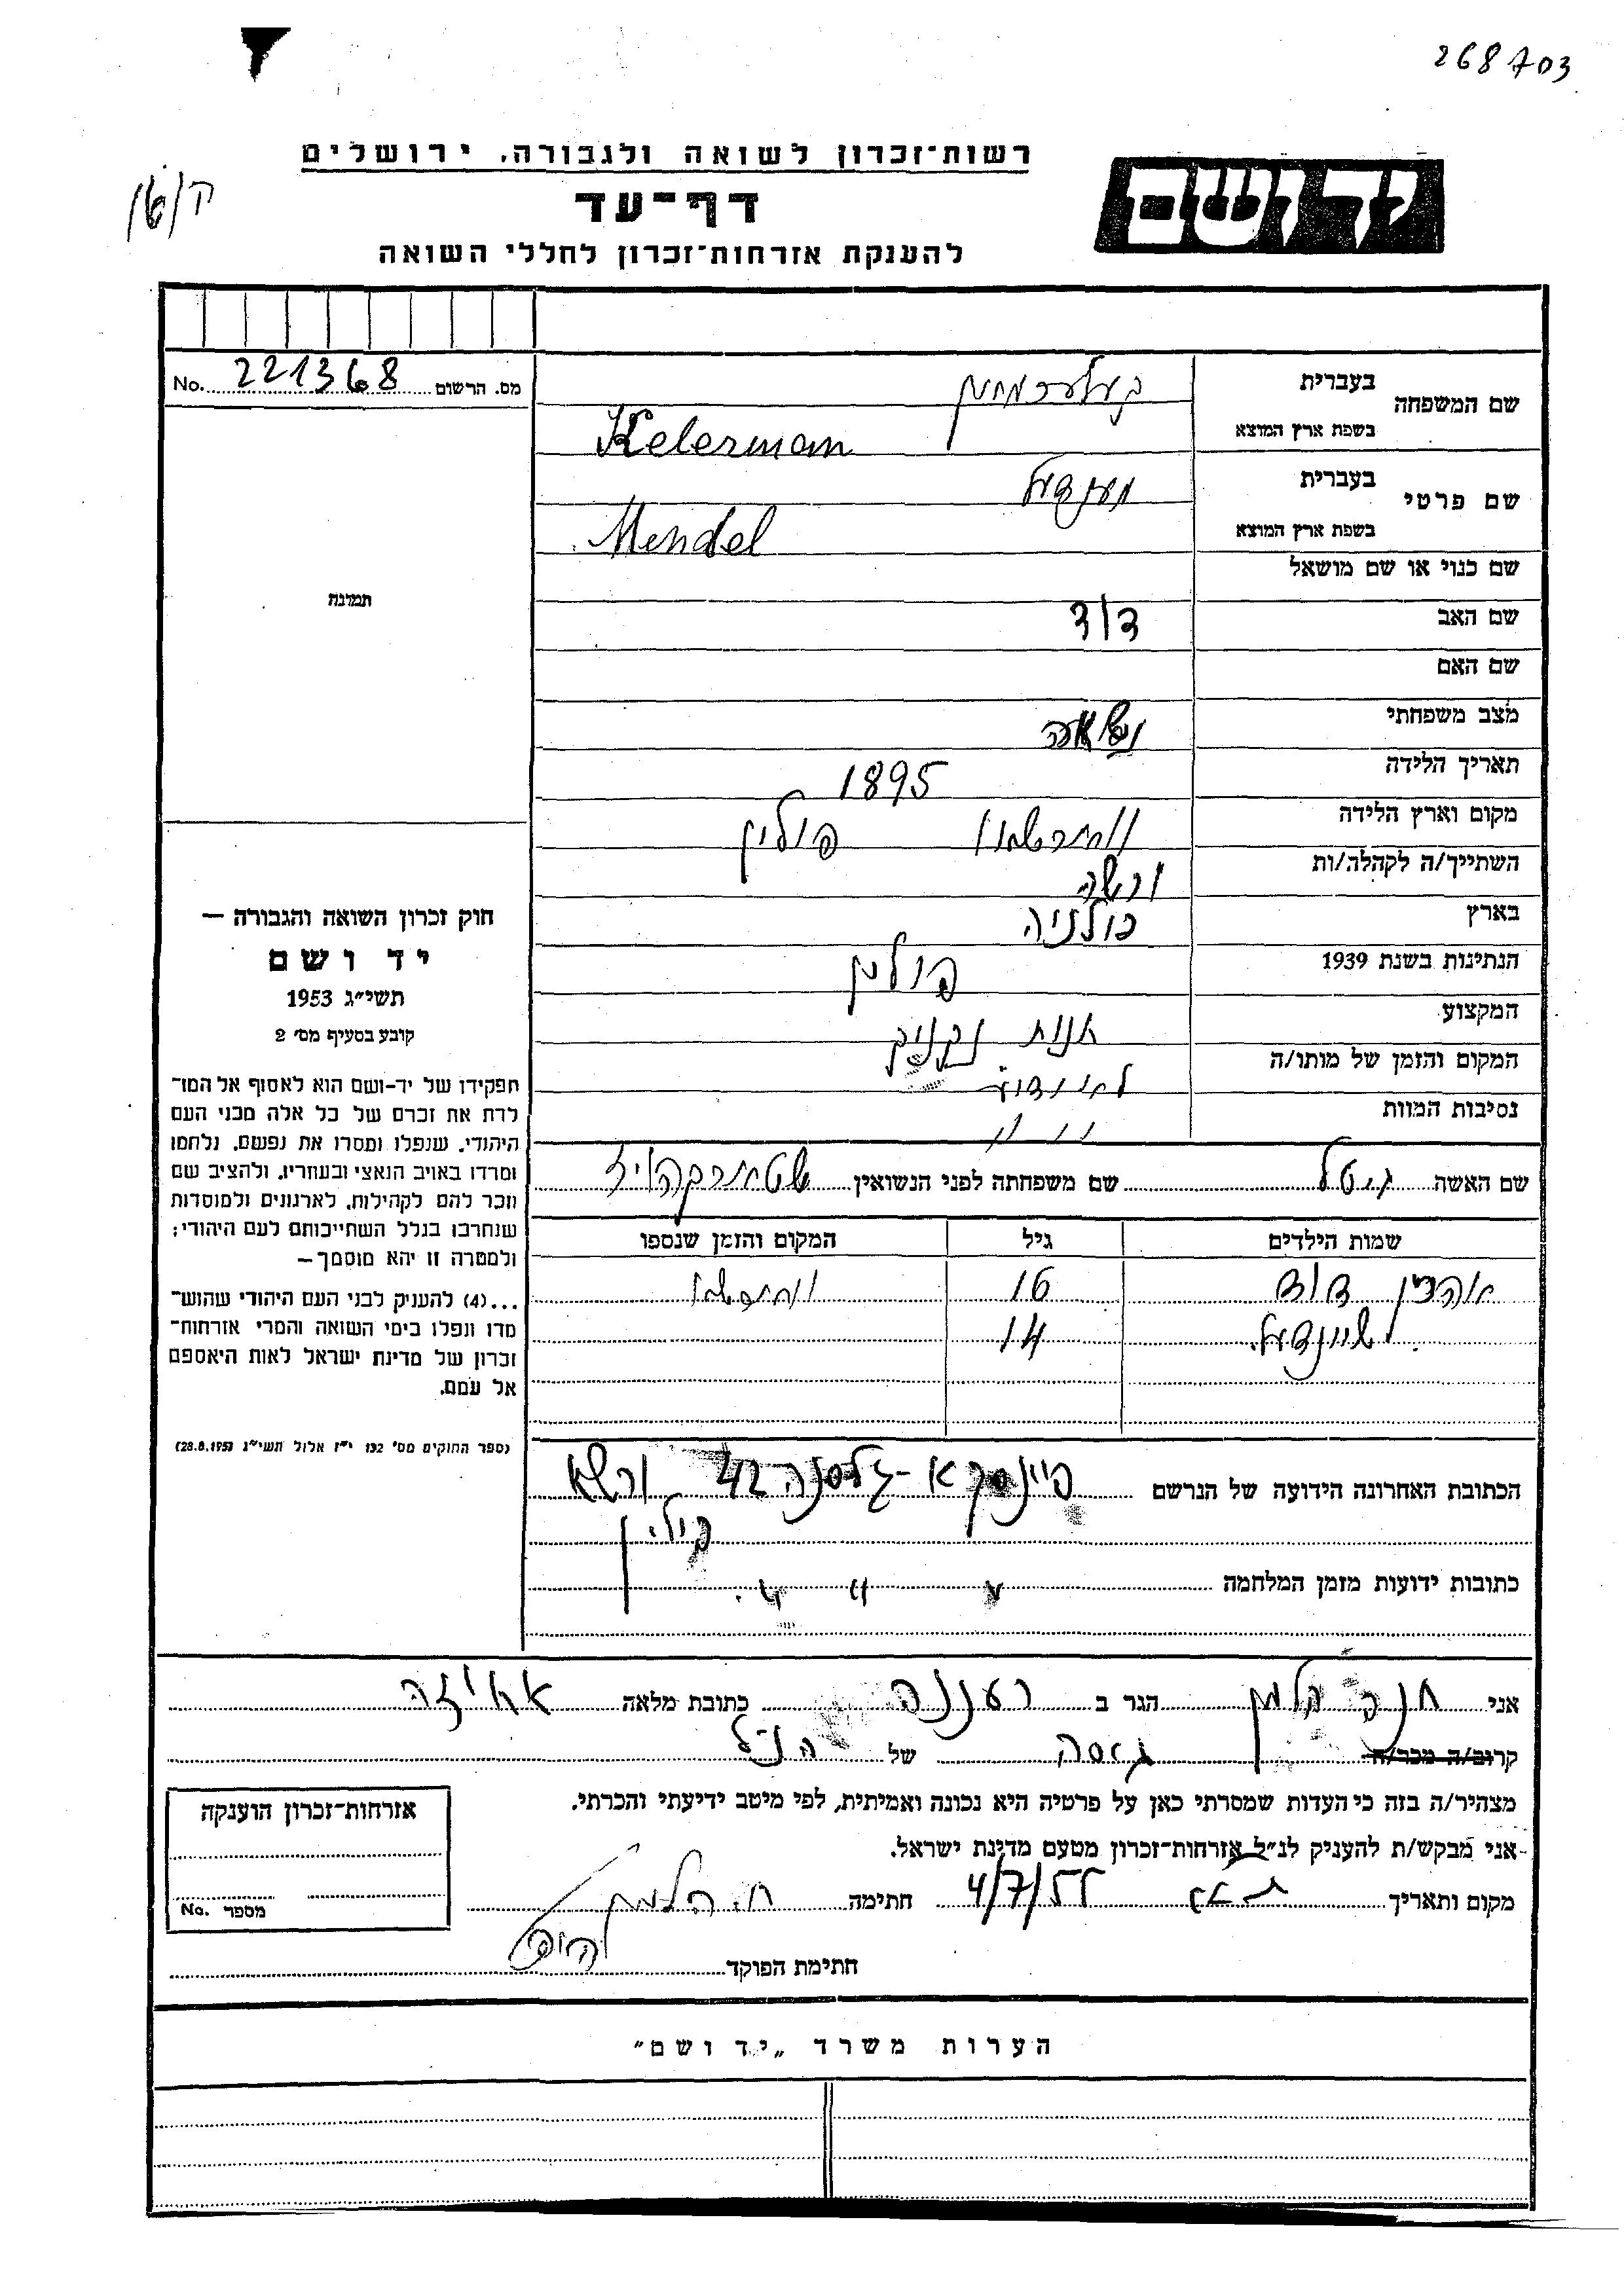 268703
רשות־זכרון לשואה ולגבורה, ירושלים
דף־עד
להענקת אזרחות־זכרון לחללי השואה
יד ושם
מס. הרשום 221368 No.
שם המשפחה
בעברית קעלערמאן
בשפת ארץ המוצא Kelerman
שם פרטי
בעברית מענדעל
בשפת ארץ המוצא Mendel
שם כנוי או שם מושאל
שם האב דוד
שם האם
מצב משפחתי
תאריך הלידה 1895
מקום וארץ הלידה ווארשאוו פולין
השתייך/ה לקהלה/ות ורשה
בארץ פולניה
הנתינות בשנת 1939 פולין
המקצוע חנות נקניק
המקום והזמן של מותו/ה
נסיבות המוות " "
תמונה
חוק זכרון השואה והגבורה —
יד ושם
תשי״ג 1953
קובע בסעיף מס׳ 2
תפקידו של יד-ושם הוא לאסוף אל המו־
לדת את זכרם של כל אלה מבני העם
היהודי, שנפלו ומסרו את נפשם, נלחמו
ומרדו באויב הנאצי ובעוזריו, ולהציב שם
וזכר להם לקהילות, לארגונים ולמוסדות
שנחרבו בגלל השתייכותם לעם היהודי;
ולמטרה זו יהא מוסמך —
...(4) להעניק לבני העם היהודי שהוש־
מדו ונפלו בימי השואה והמרי אזרחות־
זכרון של מדינת ישראל לאות היאספם
אל עמם.
(ספר החוקים מס׳ 132 י״ז אלול תשי״ג 28.8.1953)
שם האשה גיטל שם משפחתה לפני הנשואין
שמות הילדים גיל המקום והזמן שנספו
אהרון דוד 16 ווארשאוו
שיינדעל 14
הכתובת האחרונה הידועה של הנרשם 42 ורשא
פולין
כתובות ידועות מזמן המלחמה " " "
אני חנה קלמן הגר ב רעננה כתובת מלאה אחוזה
קרוב/ה מכר/ה גיסה של הנ״ל
מצהיר/ה בזה כי העדות שמסרתי כאן על פרטיה היא נכונה ואמיתית, לפי מיטב ידיעתי והכרתי.
אני מבקש/ת להעניק לנ״ל אזרחות־זכרון מטעם מדינת ישראל.
מקום ותאריך 4/7/55 חתימה ח. קלמן
חתימת הפוקד
אזרחות־זכרון הוענקה
מספר No.
הערות משרד „יד ושם״